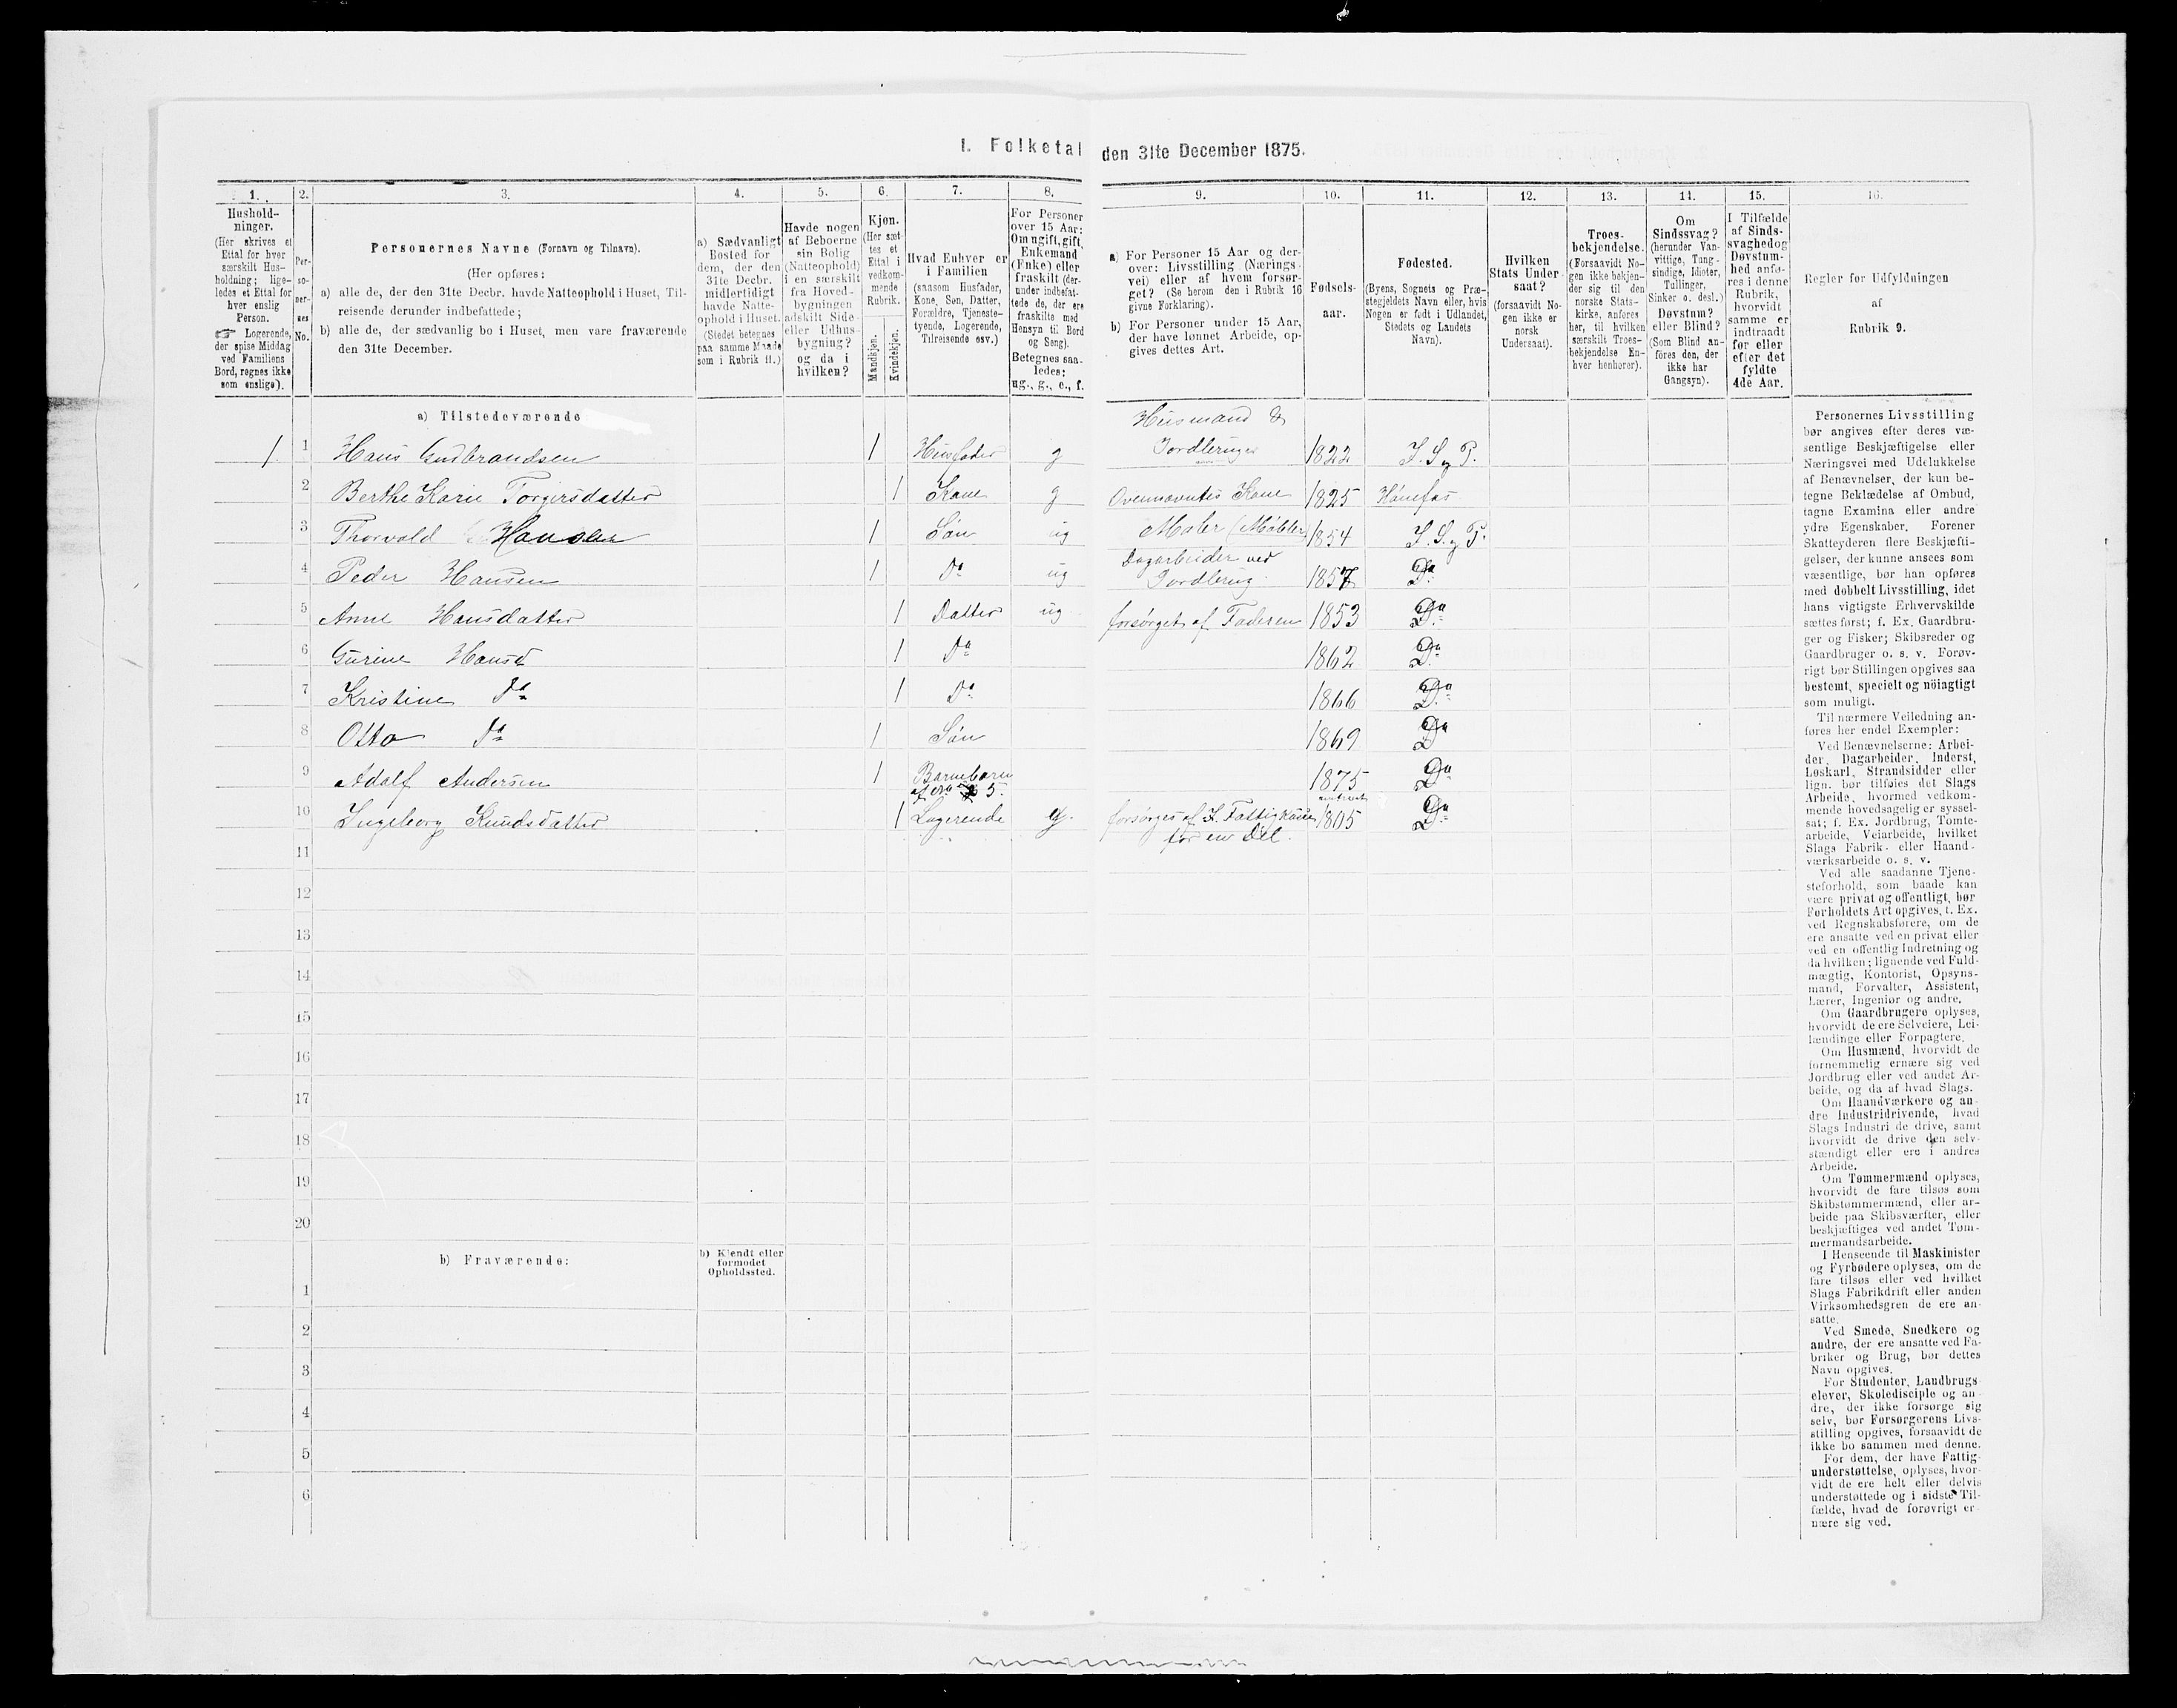 I. Folketal den 31te December 1875.
1.
Hushold-
ninger.
(Her skrives et
Ettal for hver
særskilt Hus-
holdning; lige-
ledes et Ettal for
hver enslig
Person.
☞ Logerende,
der spise Middag
ved Familiens
Bord, regnes ikke
som enslige).
2.
Per-
so-
ner-
nes
No.
3.
Personernes Navne (Fornavn og Tilnavn).
(Her opføres:
a) alle de, der den 31te Decbr. havde Natteophold i Huset, Til-
reisende derunder indbefattede;
b) alle de, der sædvanlig bo i Huset, men vare fraværende
den 31te December.
4.
a) Sædvanligt
Bosted for
dem, der den
31te Decbr.
midlertidigt
havde Natte-
ophold i Huset.
(Stedet betegnes
paa samme Maade
som i Rubrik 11.)
5.
Havde nogen
af Beboerne
sin Bolig
(Natteophold)
i en særskilt
fra Hoved-
bygningen
adskilt Side-
eller Udhus-
bygning?
og da i
hvilken?
6.
Kjøn.
(Her sæt-
tes et
Ettal i
vedkom-
mende
Rubrik.
Mandkjøn.
Kvindekjøn.
7.
Hvad Enhver er
i Familien
(saasom Husfader,
Kone, Søn, Datter,
Forældre, Tjeneste-
tyende, Logerende,
Tilreisende osv.)
8.
For Personer
over 15 Aar:
Om ugift, gift,
Enkemand
(Enke) eller
fraskilt (der-
under indbefat-
tede de, der ere
fraskilte med
Hensyn til Bord
og Seng).
Betegnes saa-
ledes:
ug., g., e., f.
9.
a) For Personer 15 Aar og der-
over: Livsstilling (Nærings-
vei) eller af hvem forsør-
get? (Se herom den i Rubrik 16
givne Forklaring).
b) For Personer under 15 Aar,
der have lønnet Arbeide, op-
gives dettes Art.
10.
Fødsels-
aar.
11.
Fødested.
(Byens, Sognets og Præ-
stegjeldets Navn eller, hvis
Nogen er født i Udlandet,
Stedets og Landets
Navn).
12.
Hvilken
Stats Under-
saat?
(forsaavidt No-
gen ikke er
norsk
Undersaat).
13.
Troes-
bekjendelse.
(Forsaavidt No-
gen ikke bekjen-
der sig til den
norske Stats-
kirke, anføres
her, til hvilken
særskilt Troes-
bekjendelse En-
hver henhører).
14.
Om
Sindssvag?
(herunder Van-
vittige, Tung-
sindige, Idioter,
Tullinger,
Sinker o. desl.)
Døvstum?
eller Blind?
(Som Blind an-
føres den, der
ikke har
Gangsyn).
15.
I Tilfælde
af Sinds-
svaghed og
Døvstum-
hed anfø-
res i denne
Rubrik,
hvorvidt
samme er
indtraadt
før eller
efter det
fyldte
4de Aar.
16.
Regler for Udfyldningen
af
Rubrik 9.
a) Tilstedeværende
1. 1 Hans Gudbrandsen 1 Husfader g Husmand & Jordbruger 1822 I. S. og P.
2 Berthe Karie Torgersdatter 1 Kone g Ovennævntes Kone 1825 Hønefos
3 Thorvald Hansen 1 Søn ug Maler (Møbler) 1854 I. S. og P.
4 Peder Hansen 1 Do ug Dagarbeider ved Jordbrug 1857 Do
5 Anne Hansdatter 1 Datter ug forsørget af Faderen 1853 Do
6 Gurine Hansd 1 Do 1862 Do
7 Kristine Do 1 Do 1866 Do
8 Otto Do 1 Søn 1869 Do
9 Adolf Andersen 1 Barnebarn af No 5. 1875 Do
10 Ingeborg Knudsdatter 1 Logerende forsørges af Fattigkassen for en Del. 1805 Do
11
12
13
14
15
16
17
18
19
20
b) Fraværende:
b) Kjendt eller
formodet
Opholdssted.
1
2
3
4
5
6
Personernes Livsstilling
bør angives efter deres væ-
sentlige Beskjæftigelse eller
Næringsvei med Udelukkelse
af Benævnelser, der kun be-
tegne Beklædelse af Ombud,
tagne Examina eller andre
ydre Egenskaber. Forener
Skatteyderen flere Beskjæfti-
gelser, der kunne ansees som
væsentlige, bør han opføres
med dobbelt Livsstilling, idet
hans vigtigste Erhvervskilde
sættes først; f. Ex. Gaardbru-
ger og Fisker; Skibsreder og
Gaardbruger o. s. v. Forøv-
rigt bør Stillingen opgives saa
bestemt, specielt og nöiagtigt
som muligt.
Til nærmere Veiledning an-
føres her endel Exempler:
Ved Benævnelserne: Arbei-
der, Dagarbeider, Inderst,
Løskarl, Strandsidder eller
lign. bør tilføies det Slags
Arbeide, hvormed vedkom-
mende hovedsagelig er syssel-
sat; f. Ex. Jordbrug, Tomte-
arbeide, Veiarbeide, hvilket
Slags Fabrik- eller Haand-
værksarbeide o. s. v.
Ved alle saadanne Tjene-
steforhold, som baade kan
være privat og offentligt, bør
Forholdets Art opgives, t. Ex.
ved Regnskabsførere, om de
ere ansatte ved en privat eller
ved en offentlig Indretning og
da hvilken; lignende ved Fuld-
mægtig, Kontorist, Opsyns-
mand, Forvalter, Assistent,
Lærer, Ingeniør og andre.
Om Gaardbrugere oplyses,
hvorvidt de ere Selveiere, Lei-
lændinge eller Forpagtere.
Om Husmænd, hvorvidt de
fornemmelig ernære sig ved
Jordbrug eller ved andet Ar-
beide, og da af hvad Slags.
Om Haandværkere og an-
dre Industridrivende, hvad
Slags Industri de drive, samt
hvorvidt de drive den selv-
stændigt eller ere i andres
Arbeide.
Om Tømmermænd oplyses,
hvorvidt de fare tilsøs som
Skibstømmermænd, eller ar-
beide paa Skibsværfter, eller
beskjæftiges ved andet Tøm-
mermandsarbeide.
I Henseende til Maskinister
og Fyrbødere oplyses, om de
fare tilsøs eller ved hvilket
Slags Fabrikdrift eller anden
Virksomhedsgren de ere an-
satte.
Ved Smede, Snedkere og
andre, der ere ansatte ved Fa-
briker og Brug, bør dettes
Navn opgives.
For Studenter, Landbrugs-
elever, Skoledisciple og an-
dre, der ikke forsørge sig
selv, bør Forsørgerens Livs-
stilling opgives, forsaavidt de
ikke bo sammen med denne.
For dem, der have Fattig-
understøttelse, oplyses, hvor-
vidt de ere helt eller delvis
understøttede og i sidste Til-
fælde, hvad de forøvrigt er-
nære sig ved.